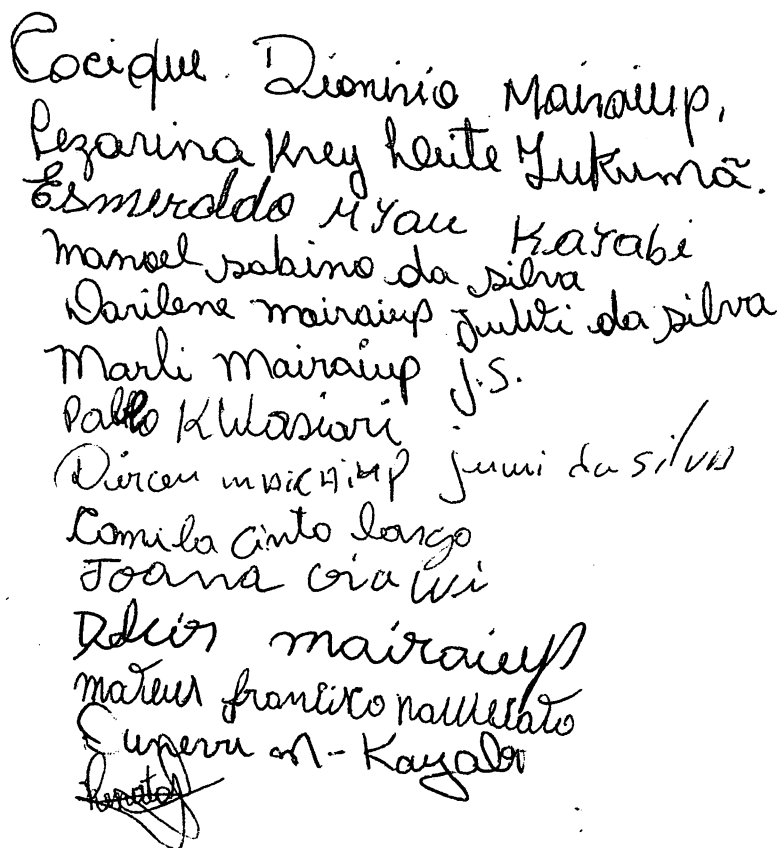 Cacique. Dionisio Mairaiup,
Cezarina Krey Leite Yukumã.
Esmeraldo Myau Kayabi
Manoel sabino da silva
Darilene mairaiup juwi da silva
Marli Mairaiup J.S.
Pablo
Dirceu mairaiup juwi da silva
Camila cinto largo
Joana
mairaiup
mateus francisco
M- Kayabi
Renato